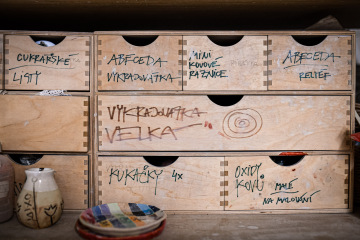 CUKRAŘSKÉ
LISTY
ABECEDA
VYKRAJOVÁTKA
MINI
KOVOVÉ
RAZNICE
ABECEDA
RELIÉF
VYKRAJOVÁTKA
VELKÁ
KUKAČKY 4x
OXIDY
KOVŮ
MALÉ
NA MALOVÁNÍ